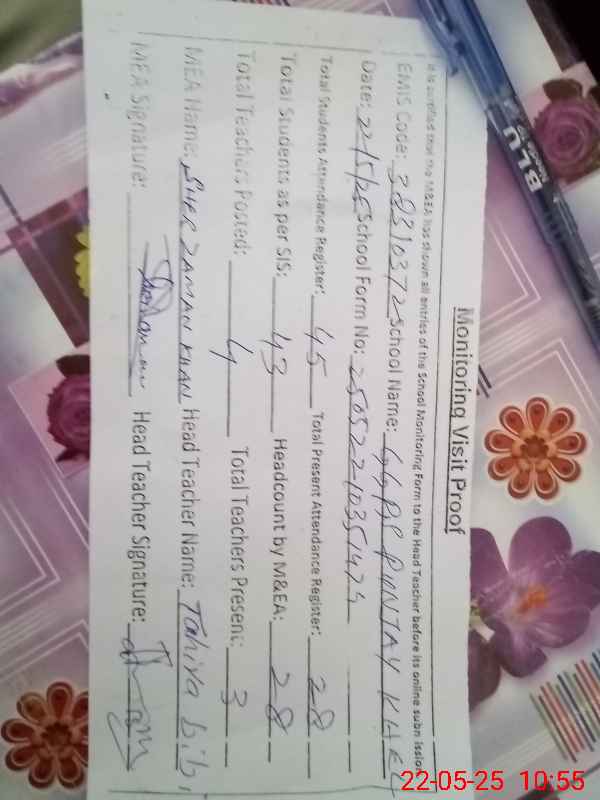 Monitoring Visit Proof
It is certified that the M&EA has shown all entries of the School Monitoring Form to the Head Teacher before its online submission
EMIS Code: 38310372 School Name: GGPS PUNJAY KHEL
Date: School Form No:
Total Students Attendance Register: 45 Total Present Attendance Register: 28
Total Students as per SIS: 43 Headcount by M&EA: 28
Total Teachers Posted: 4 Total Teachers Present: 3
MEA Name: SHER ZAMAN KHAN Head Teacher Name: Tahira bibi
MEA Signature: Head Teacher Signature:
BLU
22-05-25 10:55